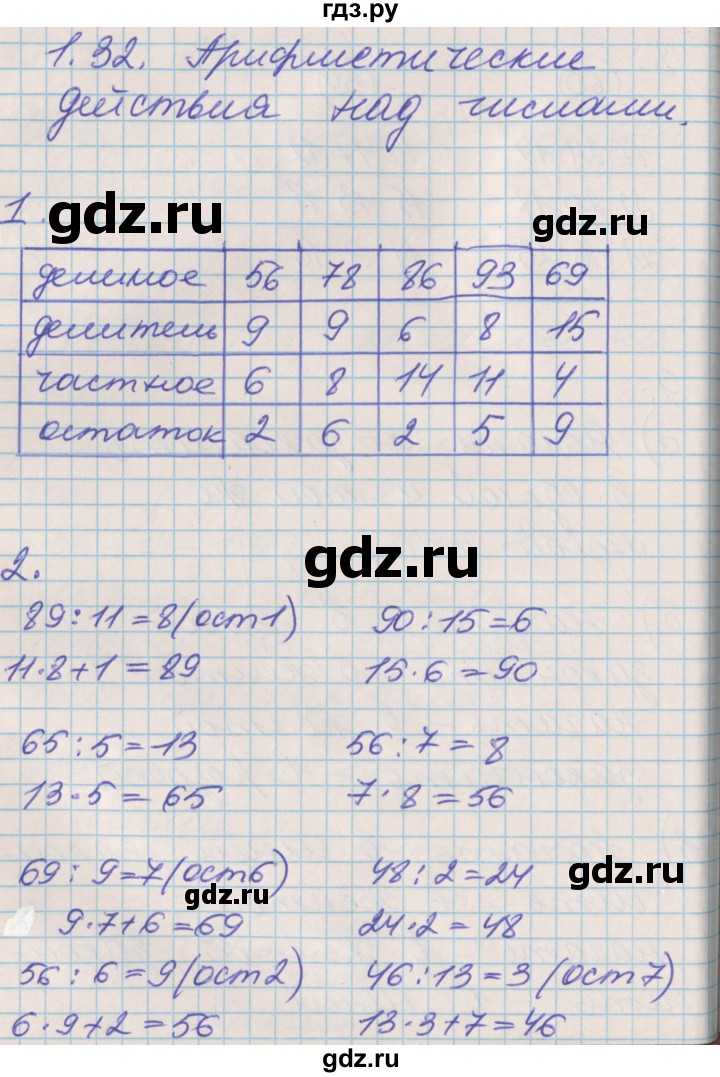 гдз.ру
1.32. Арифметические
действия над числами.
1.
gdz.ru gdz.ru
делимое 56 78 86 93 69
делитель 9 9 6 8 15
частное 6 8 14 11 4
остаток 2 6 2 5 9
gdz.ru
2.
89:11=8(ост1) 90:15=6
11·8+1=89 15·6=90
65:5=13 56:7=8
13·5=65 7·8=56
69:9=7(ост6) 48:2=24
gdz.ru gdz.ru
9·7+6=69 24·2=48
56:6=9(ост2) 46:13=3(ост7)
6·9+2=56 13·3+7=46
gdz.ru